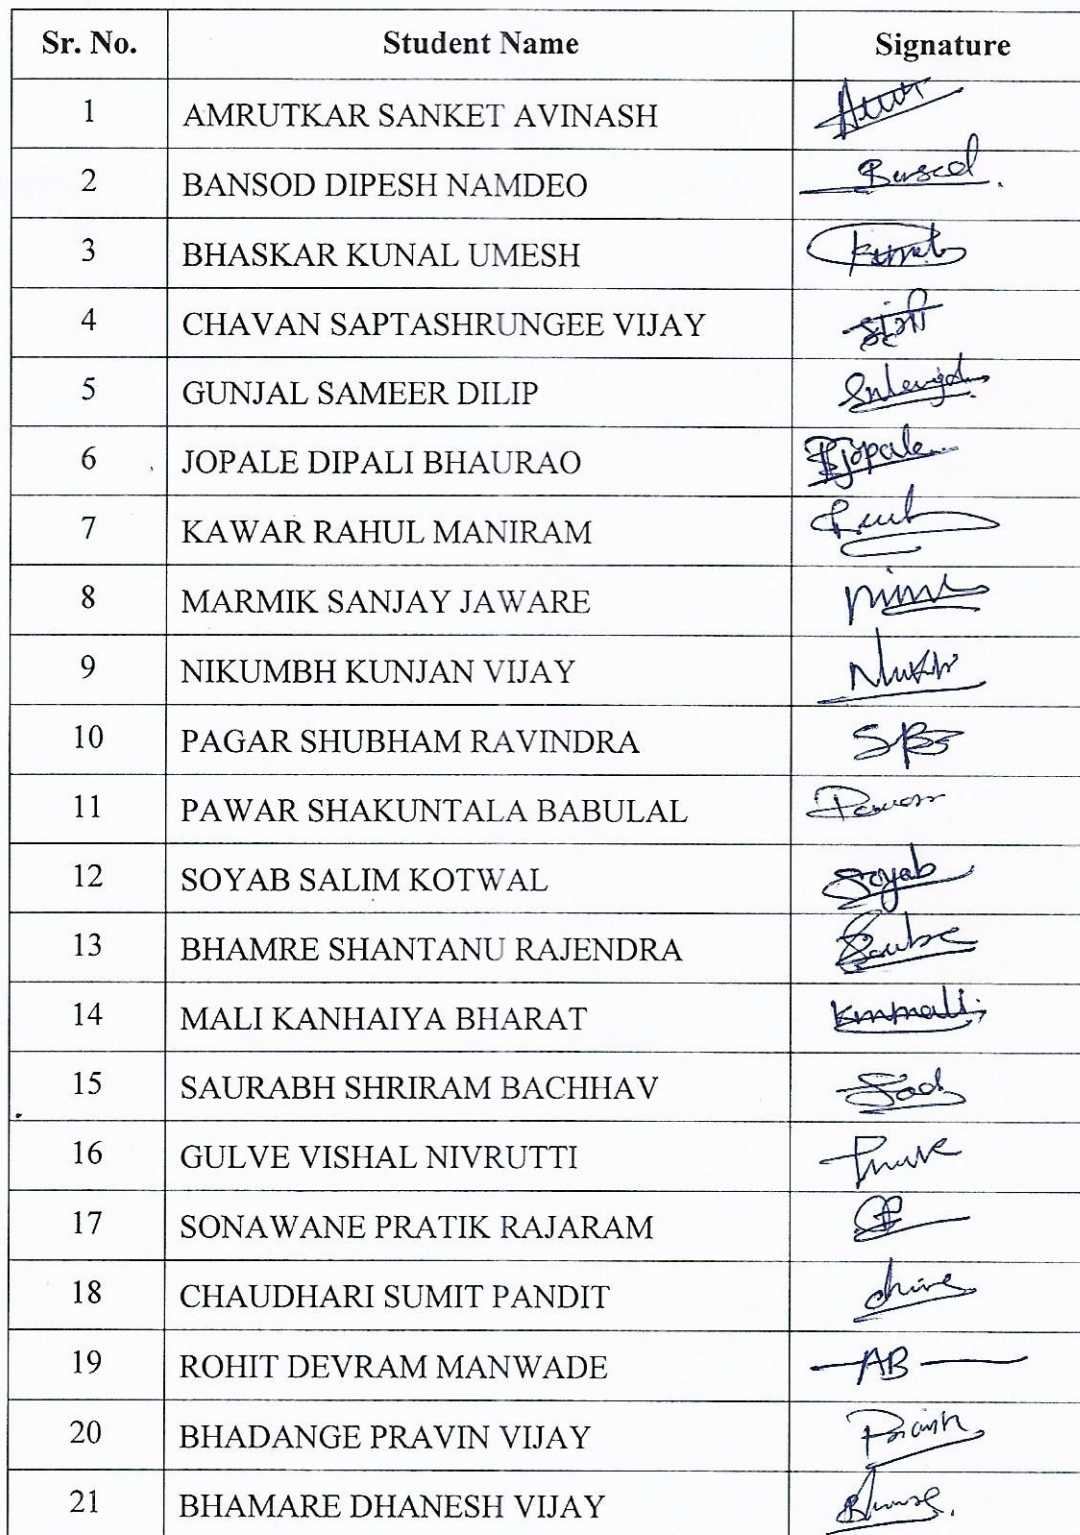 Sr. No. Student Name Signature
1 AMRUTKAR SANKET AVINASH
2 BANSOD DIPESH NAMDEO
3 BHASKAR KUNAL UMESH
4 CHAVAN SAPTASHRUNGEE VIJAY
5 GUNJAL SAMEER DILIP
6 JOPALE DIPALI BHAURAO Jopale
7 KAWAR RAHUL MANIRAM
8 MARMIK SANJAY JAWARE
9 NIKUMBH KUNJAN VIJAY
10 PAGAR SHUBHAM RAVINDRA
11 PAWAR SHAKUNTALA BABULAL
12 SOYAB SALIM KOTWAL Soyab
13 BHAMRE SHANTANU RAJENDRA
14 MALI KANHAIYA BHARAT
15 SAURABH SHRIRAM BACHHAV
16 GULVE VISHAL NIVRUTTI
17 SONAWANE PRATIK RAJARAM
18 CHAUDHARI SUMIT PANDIT
19 ROHIT DEVRAM MANWADE — AB —
20 BHADANGE PRAVIN VIJAY
21 BHAMARE DHANESH VIJAY